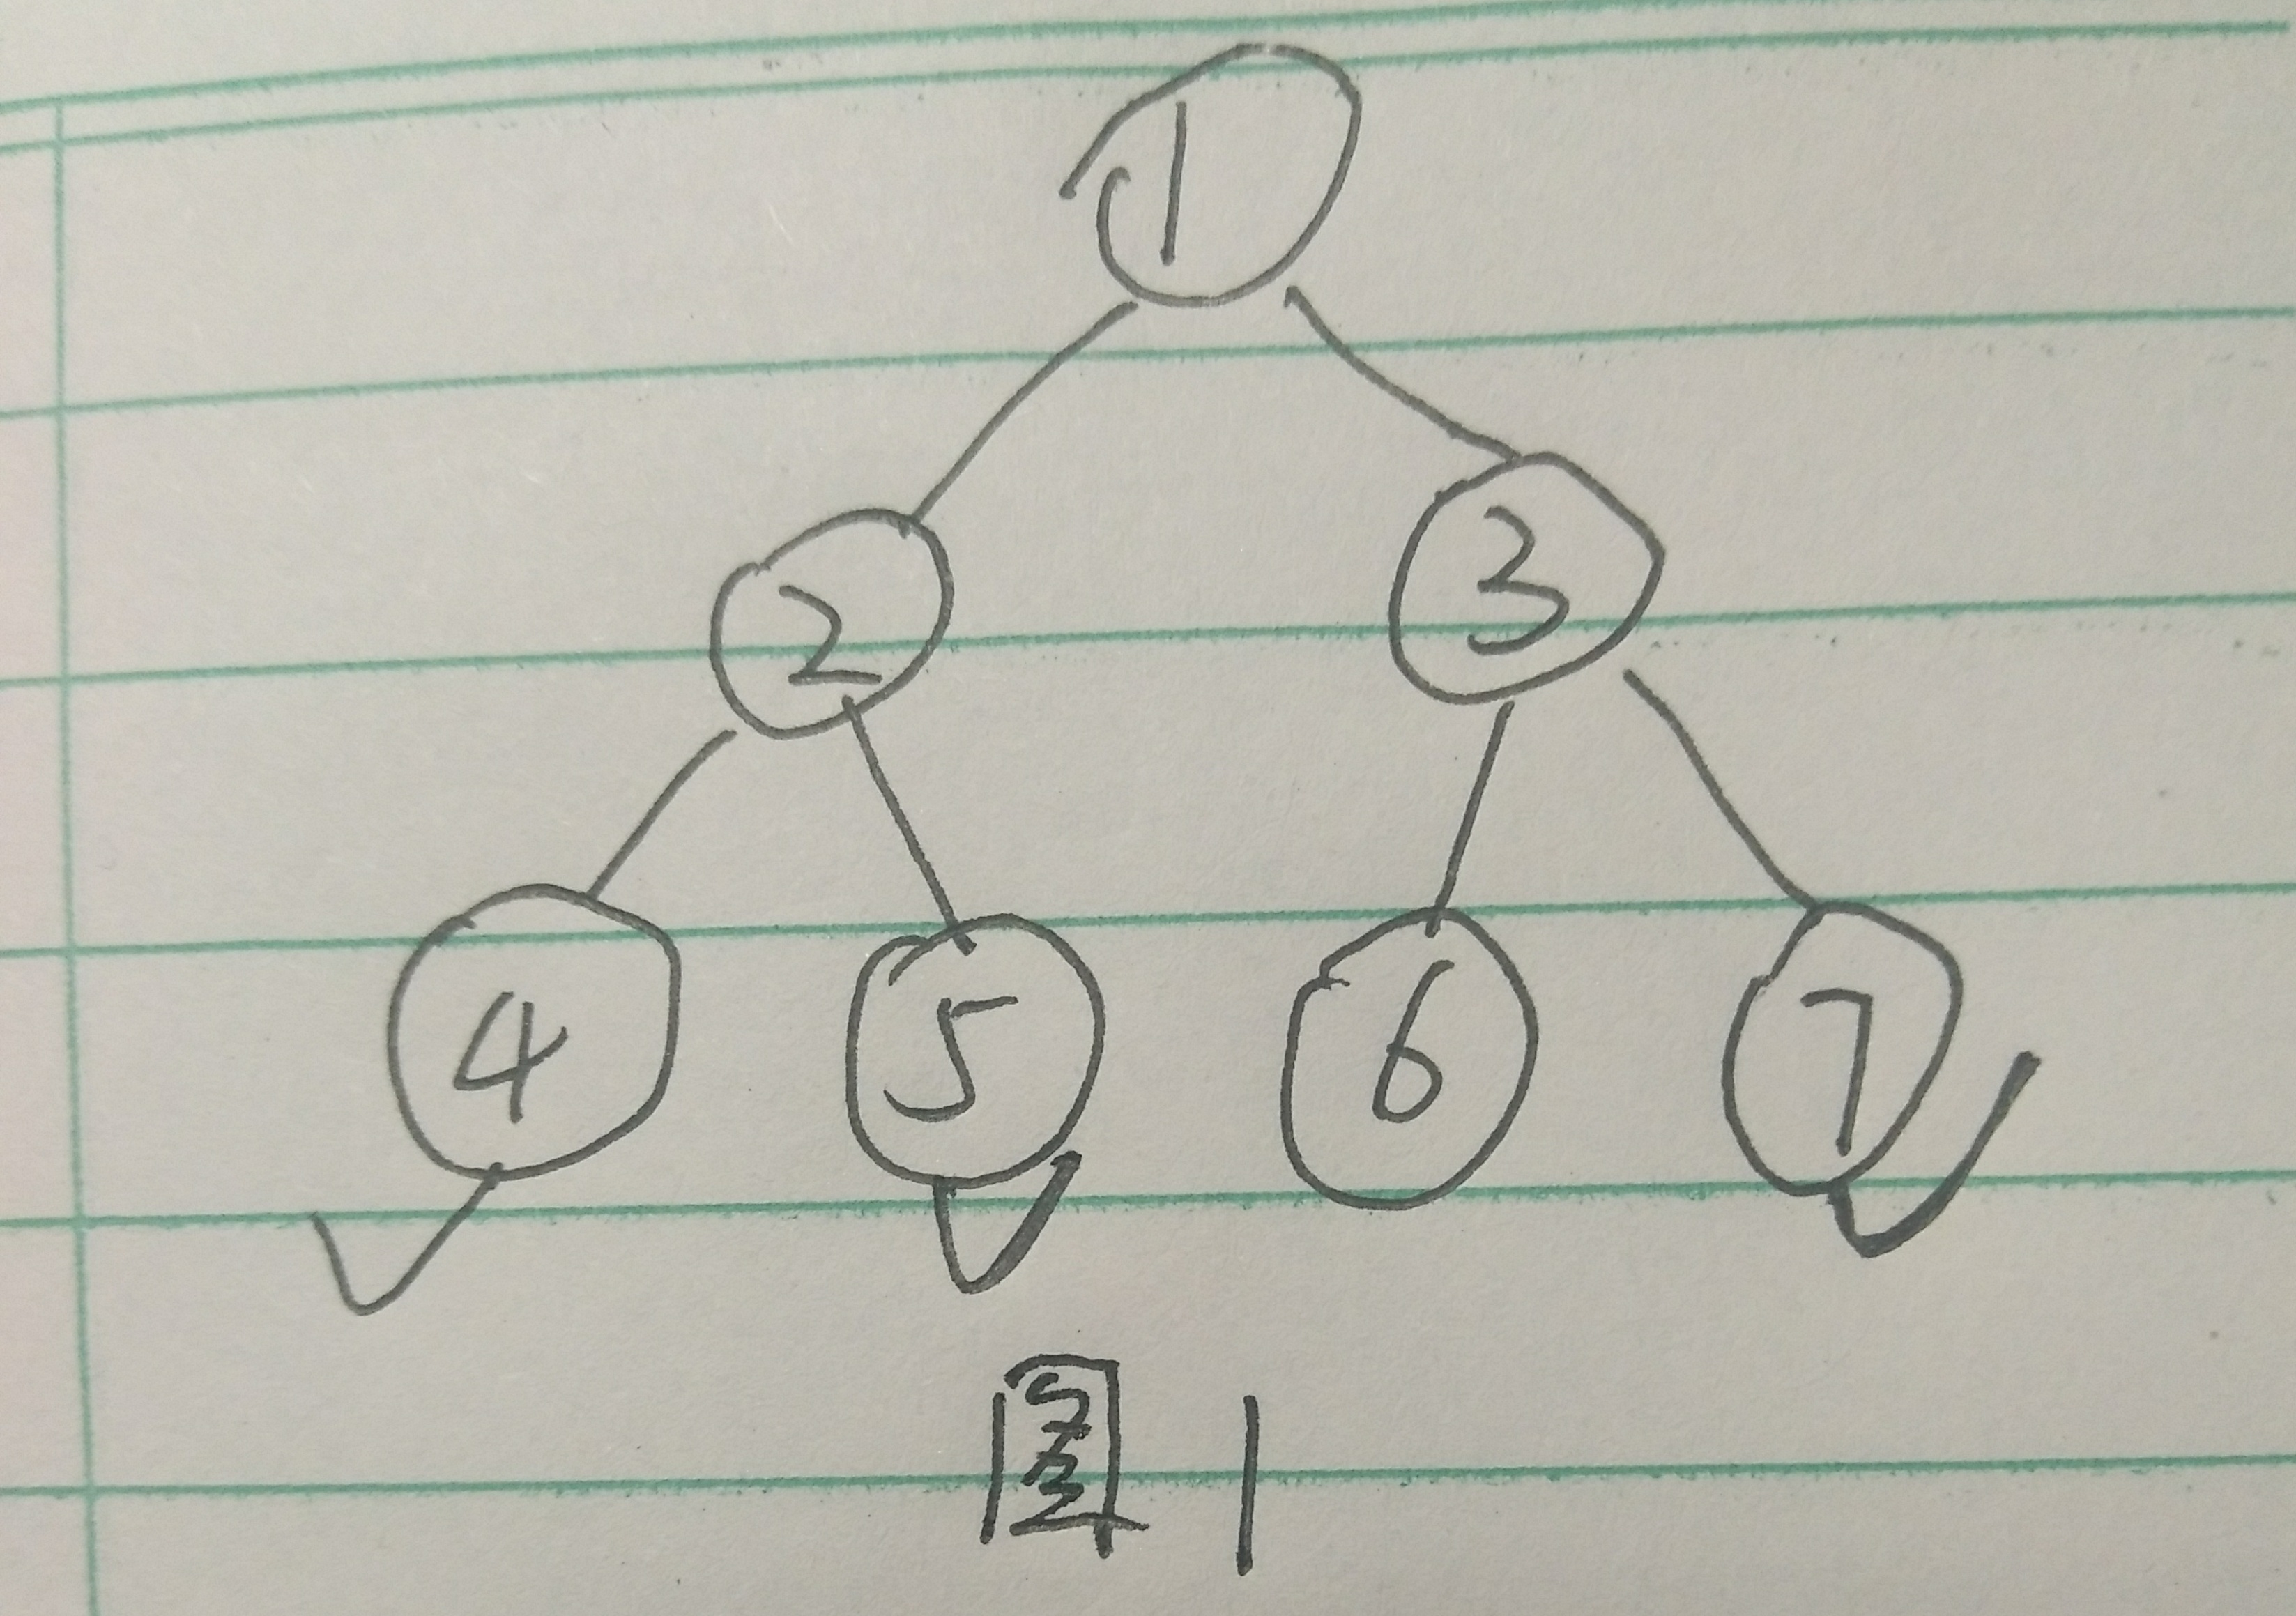 1
2 3
4 5 6 7
图 1